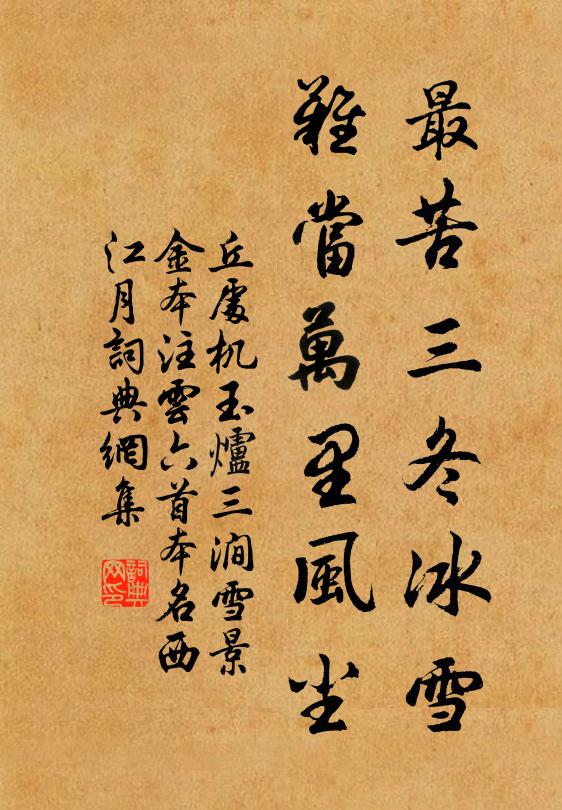 最苦三冬冰雪
難當萬里風塵
丘處机玉爐三澗雪景
金本注雲六首本名西
江月詞典網集
詞典
网印